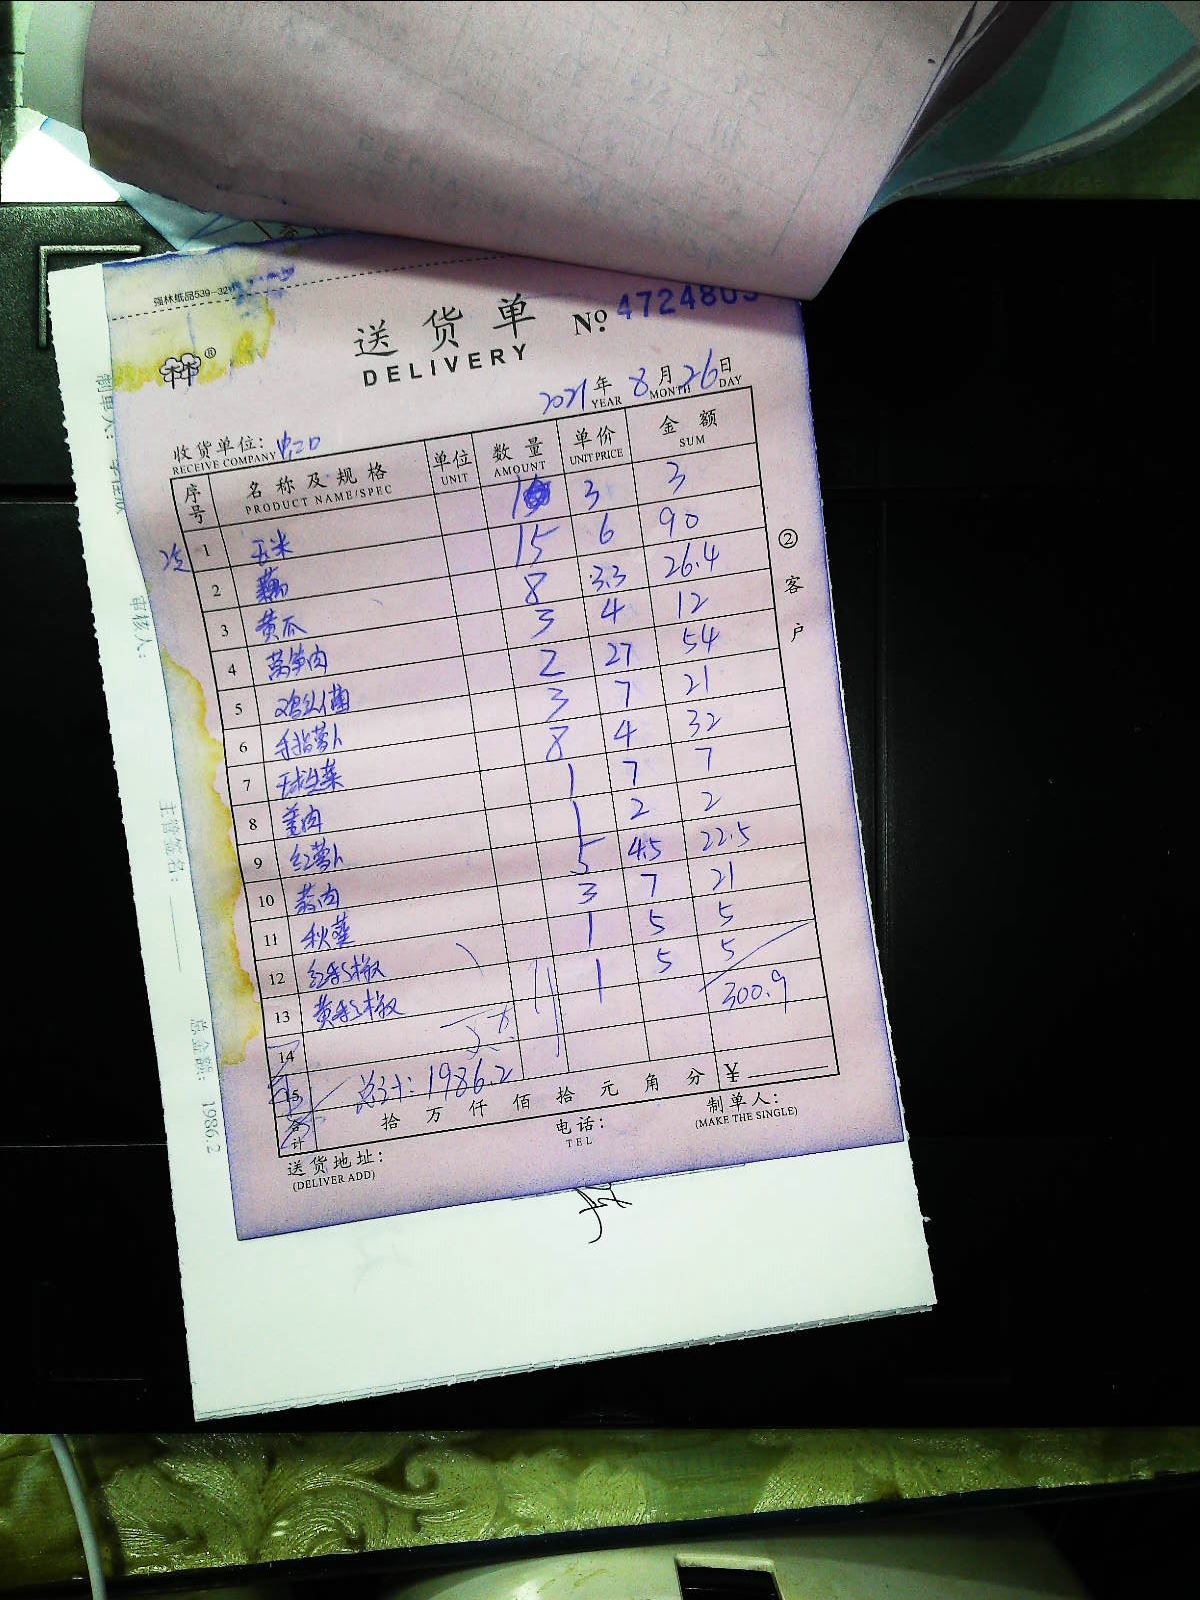 强林纸品539-32
送货单
DELIVERY
№ 472480
2021年 8月 26日
YEAR MONTH DAY
收货单位：虹口
RECEIVE COMPANY
序号 名称及规格 单位 数量 单价 金额
PRODUCT NAME/SPEC UNIT AMOUNT UNIT PRICE SUM
1 玉米 1 3 3
2 藕 15 6 90
3 黄瓜 8 3.3 26.4
4 莴笋肉 3 4 12
5 鸡头菌 2 27 54
6 手指萝卜 3 7 21
7 玉球生菜 8 4 32
8 姜肉 1 7 7
9 红萝卜 1 2 2
10 蒜肉 5 4.5 22.5
11 秋葵 3 7 21
12 红彩椒 1 5 5
13 黄彩椒 1 5 5
14 300.9
15 总计：1986.2
合计 拾 万 仟 佰 拾 元 角 分 ¥
送货地址：
(DELIVER ADD)
电话：
TEL
制单人：
(MAKE THE SINGLE)
②客户
制单人：
审核人：
主管签名：
总金额：1986.2